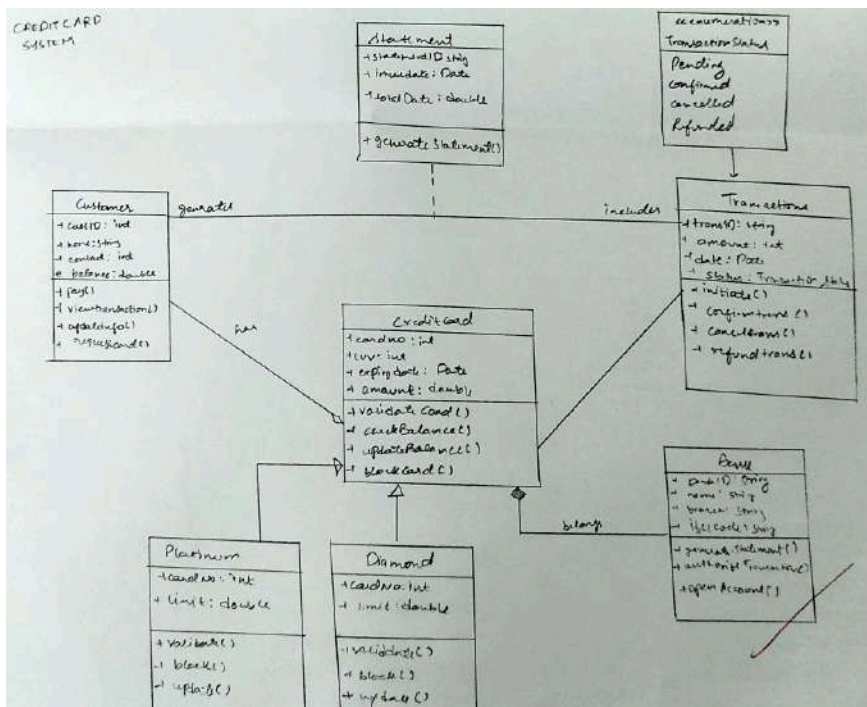 CREDIT CARD
SYSTEM
Statement
+ statementID: string
: Date
+ totalDate: double
+ generateStatement()
<<enumeration>>
TransactionStatus
Pending
Confirmed
Cancelled
Refunded
Customer
+ custID: int
+ name: string
+ contact: int
balance: double
+ pay()
+ viewtransaction()
+ updateInfo()
generates
includes
Transactions
+ transID: string
+ amount: int
+ date: Date
+ status: Transaction
+ initiate()
+ confirmtrans()
+ canceltrans()
+ refundtrans()
has
CreditCard
+ cardno: int
+ cvv: int
+ expirydate: Date
+ amount: double
+ validateCard()
+ checkBalance()
+ updateBalance()
+ blockCard()
belongs
Bank
+ bankID: string
+ name: string
+ branch: string
+ ifsccode: string
+ generateStatement()
+ authorizeTransaction()
+ openAccount()
Platinum
+ cardNo: int
+ limit: double
+ block()
Diamond
+ cardNo: int
+ limit: double
+ validate()
+ block()
+ update()